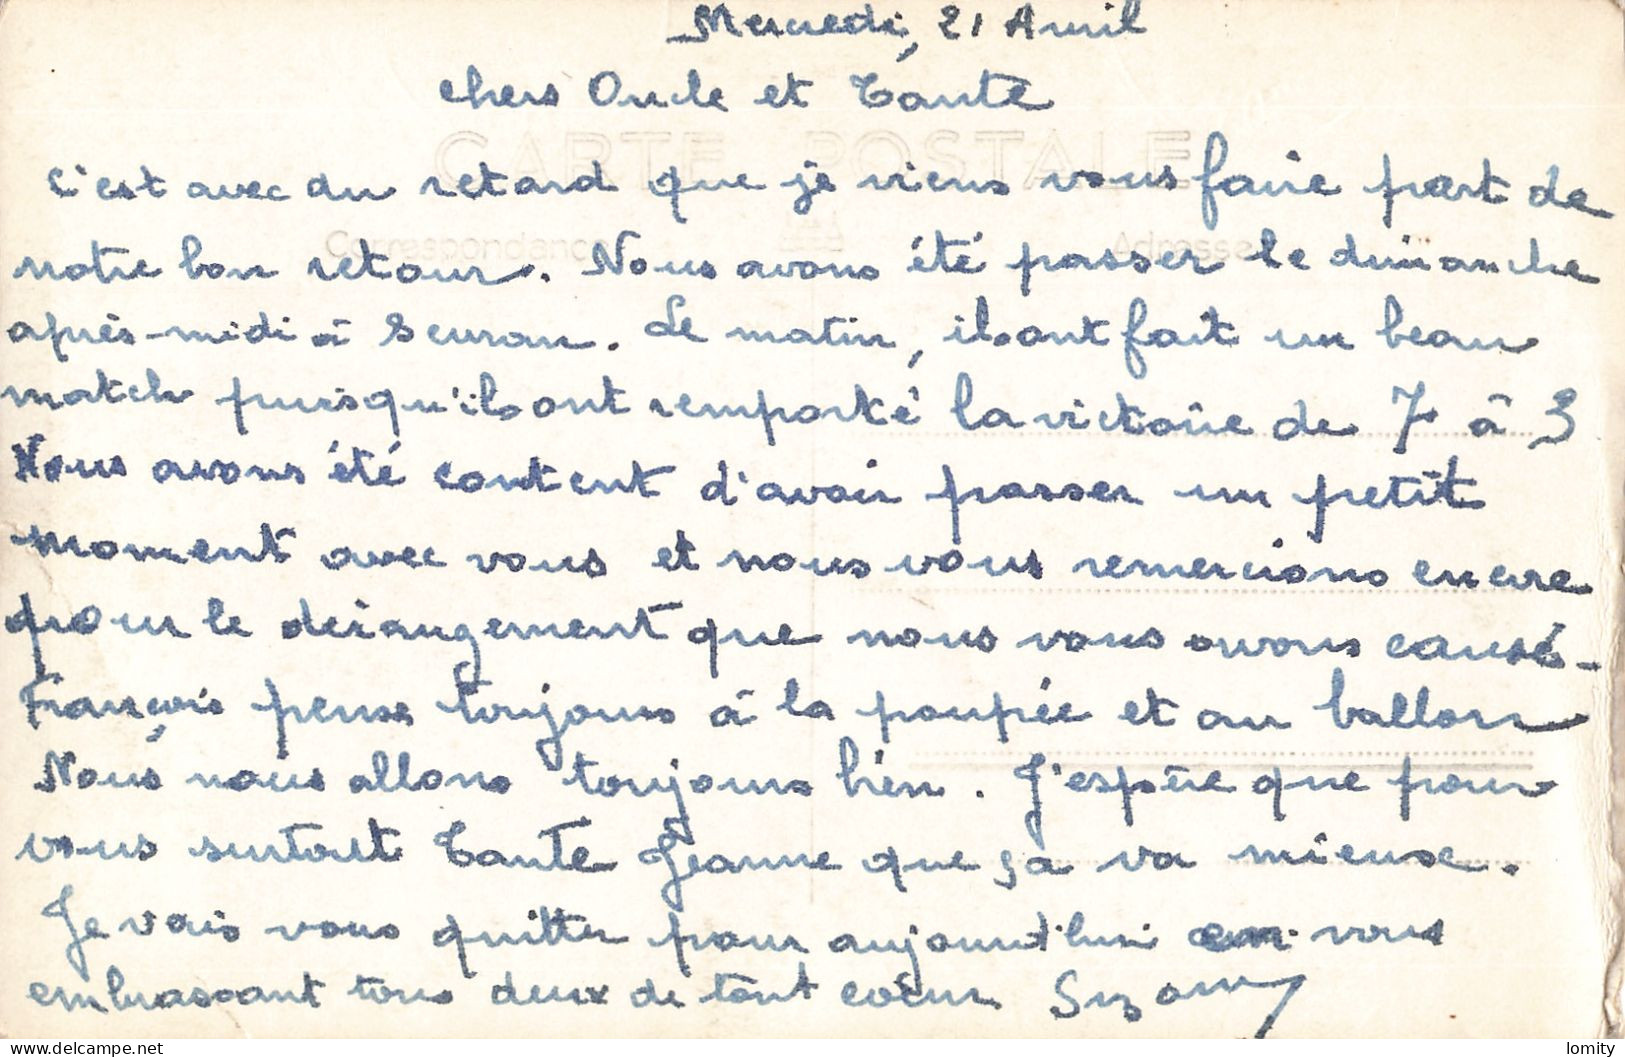 Mercredi, 21 Avril
chers Oncle et Tante
CARTE POSTALE
C'est avec du retard que je viens vous faire part de
Correspondance Adresse
notre bon retour. Nous avons été passer le dimanche
après-midi à Sevran. Le matin, ils ont fait un beau
match puisqu'ils ont remporté la victoire de 7 à 3
Nous avons été content d'avoir passer un petit
moment avec vous et nous vous remercions encore
pour le dérangement que nous vous avons causé-
François pense toujours à la poupée et au ballon
Nous nous allons toujours bien. J'espère que pour
vous surtout Tante Jeanne que ça va mieux.
Je vais vous quitter pour aujourd'hui en vous
embrassant tous deux de tout coeur Suzanne
delcampe.net
lomity